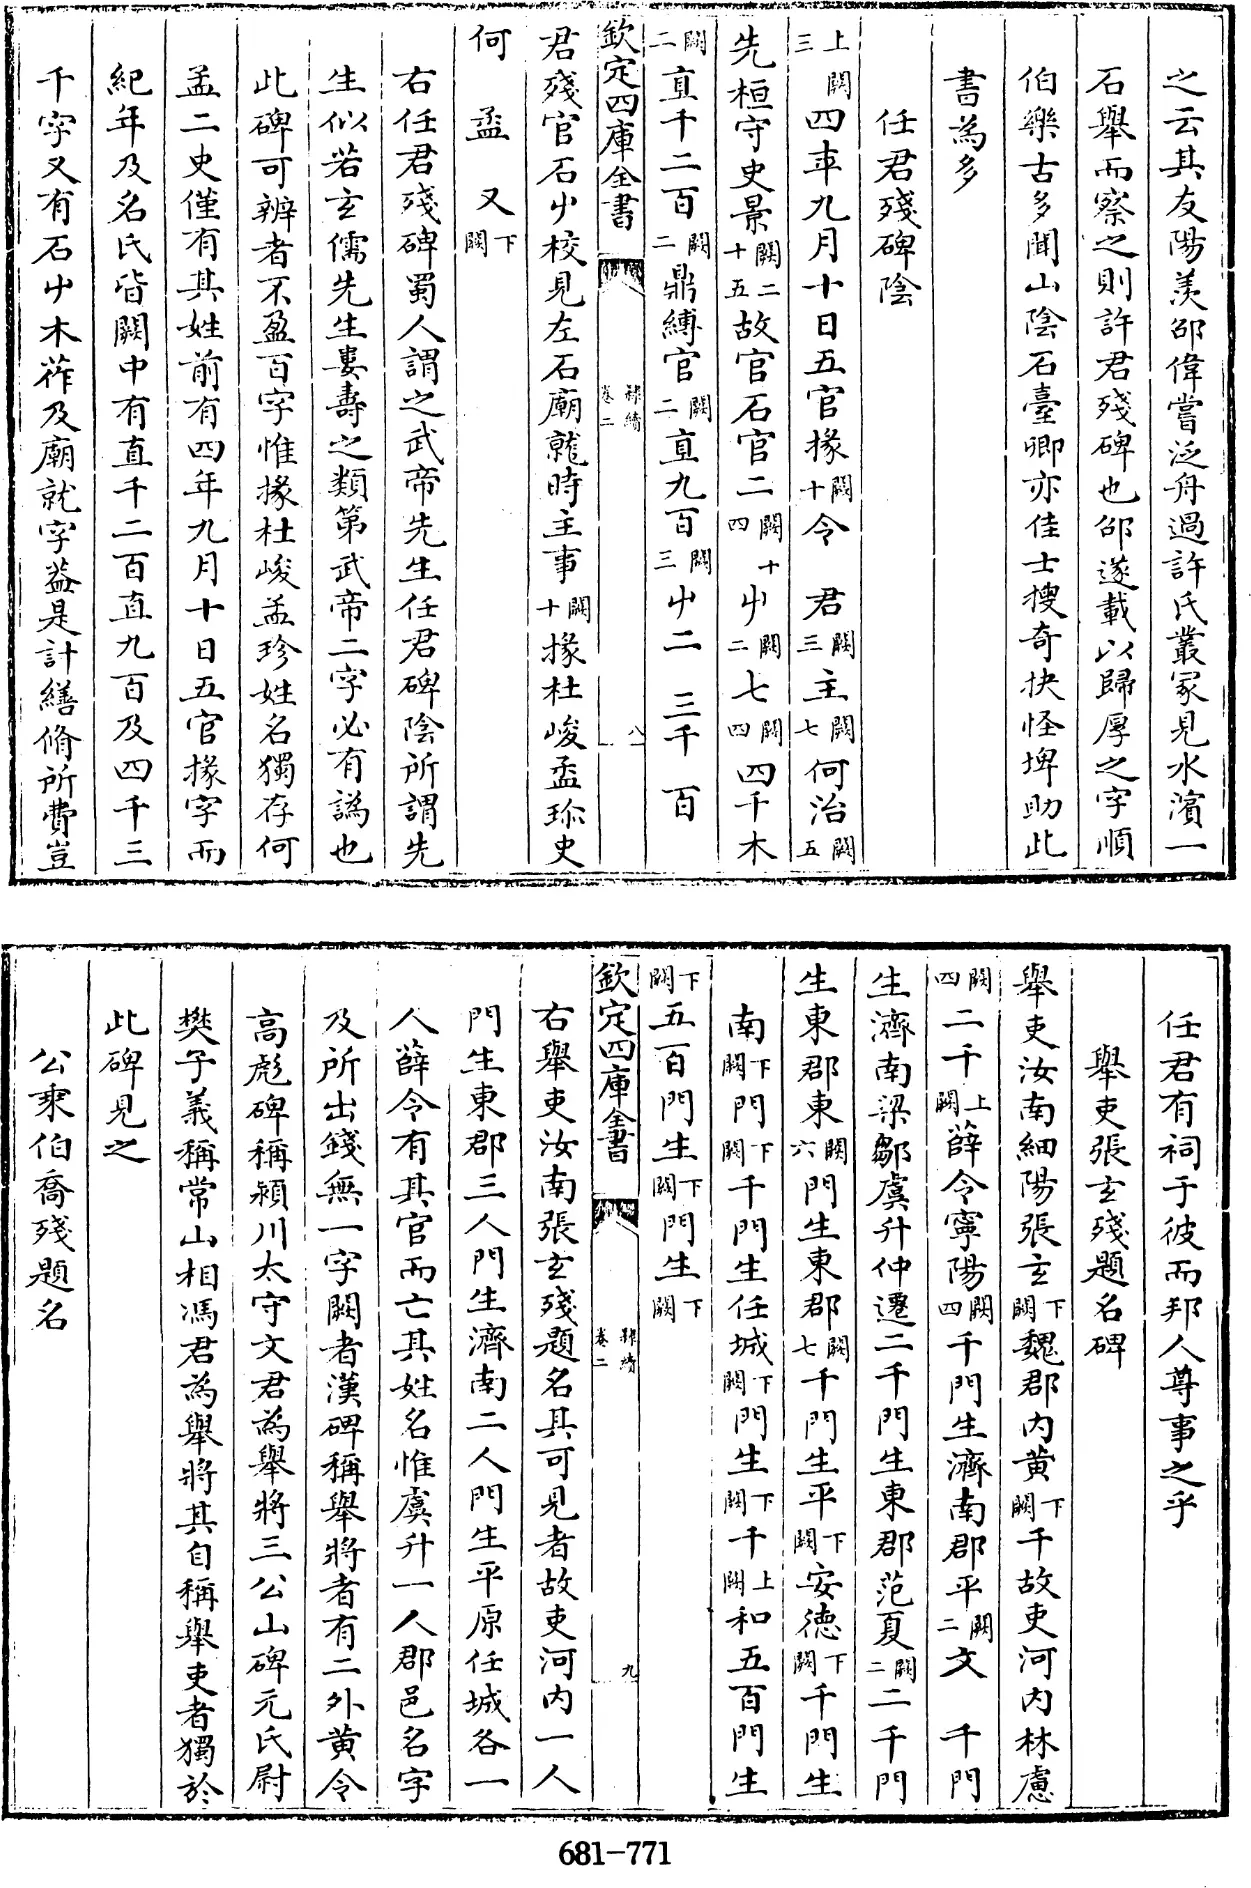 之云其友陽羨邵偉嘗泛舟過許氏叢冢見水濱一
石舉而察之則許君殘碑也邵遂載以歸厚之字順
伯樂古多聞山陰石臺卿亦佳士搜奇抉怪埤助此
書為多
任君殘碑陰
上闕三四年九月十日五官掾闕十令　君闕三主闕七何治闕五
先桓守史景闕二十五故官石官二闕十四屮闕二七闕四四千木
闕二直千二百闕二鼎縛官闕二直九百闕三屮二　三千　百
欽定四庫全書
隸續
卷二
八
君殘官石屮校見左石廟龍時主事闕十掾杜峻孟珎史
何　孟　又下闕
右任君殘碑蜀人謂之武帝先生任君碑陰所謂先
生似若玄儒先生婁壽之類第武帝二字必有譌也
此碑可辨者不盈百字惟掾杜峻孟珍姓名獨存何
孟二史僅有其姓前有四年九月十日五官掾字而
紀年及名氏皆闕中有直千二百直九百及四千三
千字又有石屮木莋及廟就字蓋是計繕脩所費豈
任君有祠于彼而邦人尊事之乎
舉吏張玄殘題名碑
舉吏汝南細陽張玄下闕魏郡内黄下闕千故吏河内林慮
闕四二千上闕薛令寧陽闕四千門生濟南郡平闕二文　千門
生濟南梁鄒虞升仲遷二千門生東郡范夏闕二二千門
生東郡東闕六門生東郡闕七千門生平下闕安德下闕千門生
南下闕門下闕千門生任城下闕門生下闕千上闕和五百門生
下闕五百門生下闕門生下闕
欽定四庫全書
隸續
卷二
九
右舉吏汝南張玄殘題名其可見者故吏河内一人
門生東郡三人門生濟南二人門生平原任城各一
人薛令有其官而亡其姓名惟虞升一人郡邑名字
及所出錢無一字闕者漢碑稱舉將者有二外黄令
高彪碑稱潁川太守文君為舉將三公山碑元氏尉
樊子義稱常山相馮君為舉將其自稱舉吏者獨於
此碑見之
公乘伯喬殘題名
681-771